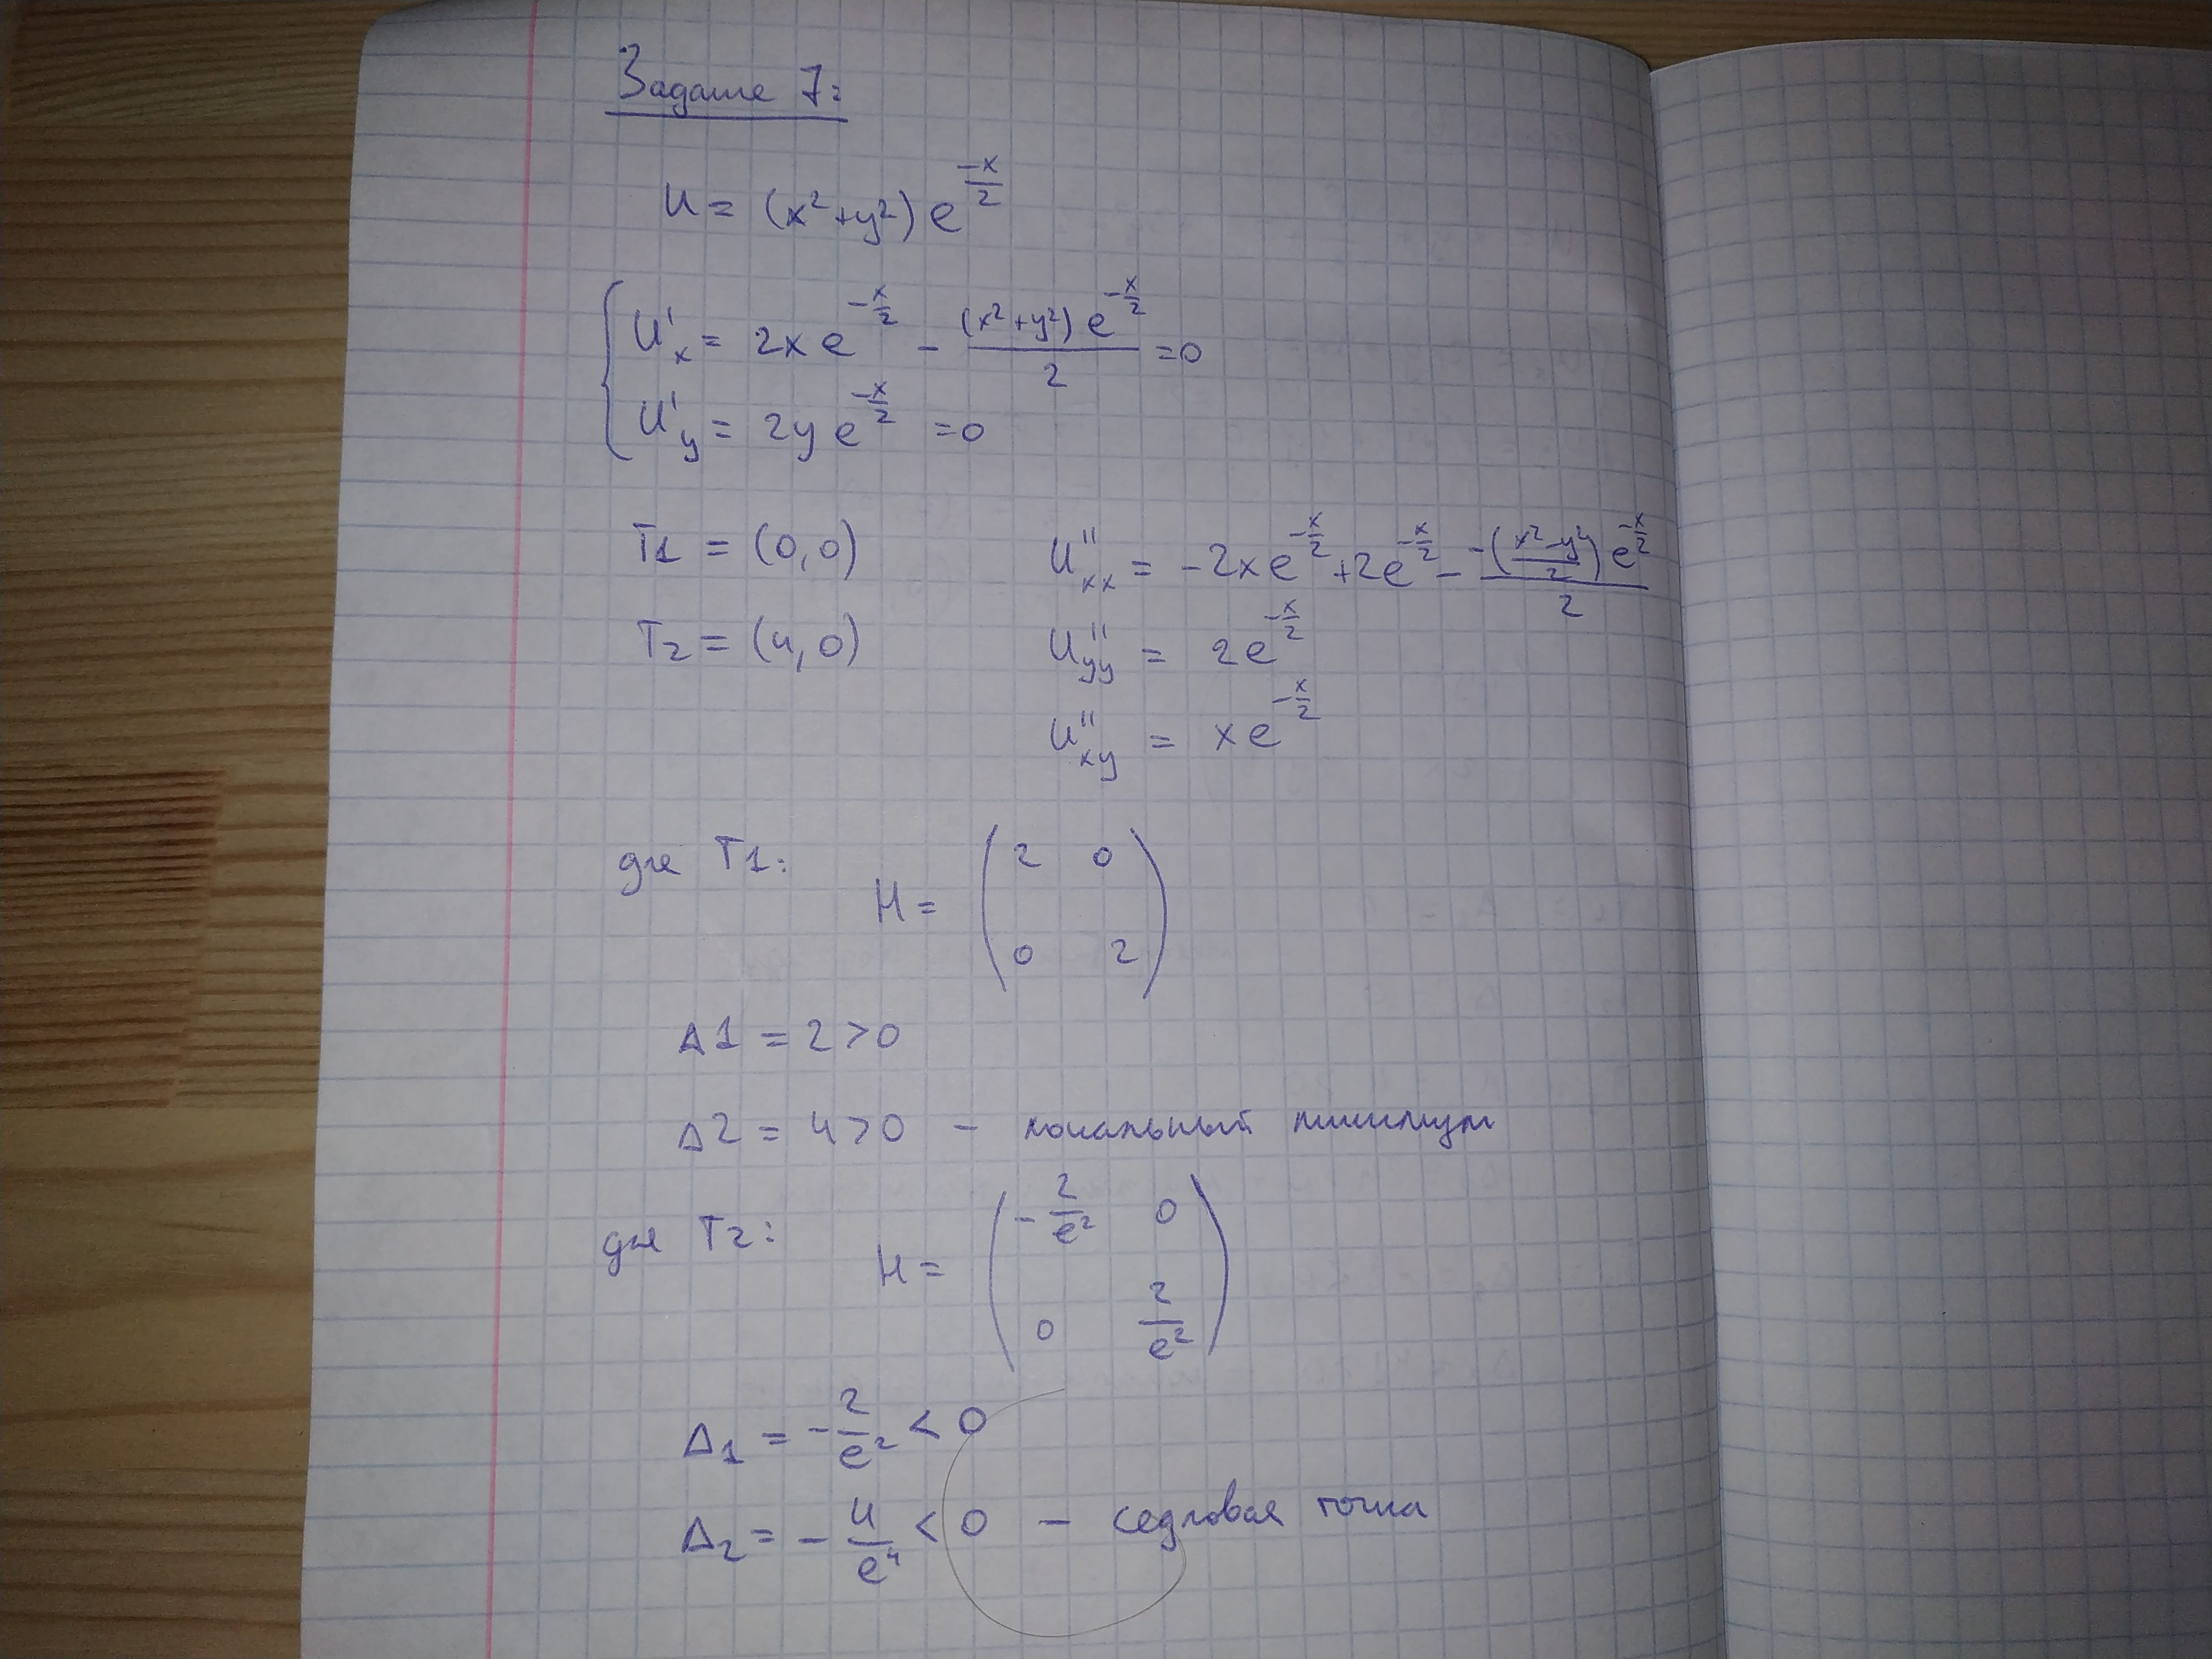 Задание 7:
U = (x²+y²) e^(-x/2)
{ U'x = 2x e^(-x/2) - ((x²+y²) e^(-x/2))/2 = 0
U'y = 2y e^(-x/2) = 0
T1 = (0,0)
U''xx = -2x e^(-x/2) + 2e^(-x/2) - (-((x²-y²)/2) e^(-x/2))/2
T2 = (4,0)
U''yy = 2e^(-x/2)
U''xy = x e^(-x/2)
для T1:
H = (2 0
0 2)
Δ1 = 2 > 0
Δ2 = 4 > 0 - локальный минимум
для T2:
H = (-2/e² 0
0 2/e²)
Δ1 = -2/e² < 0
Δ2 = -4/e⁴ < 0 - седловая точка